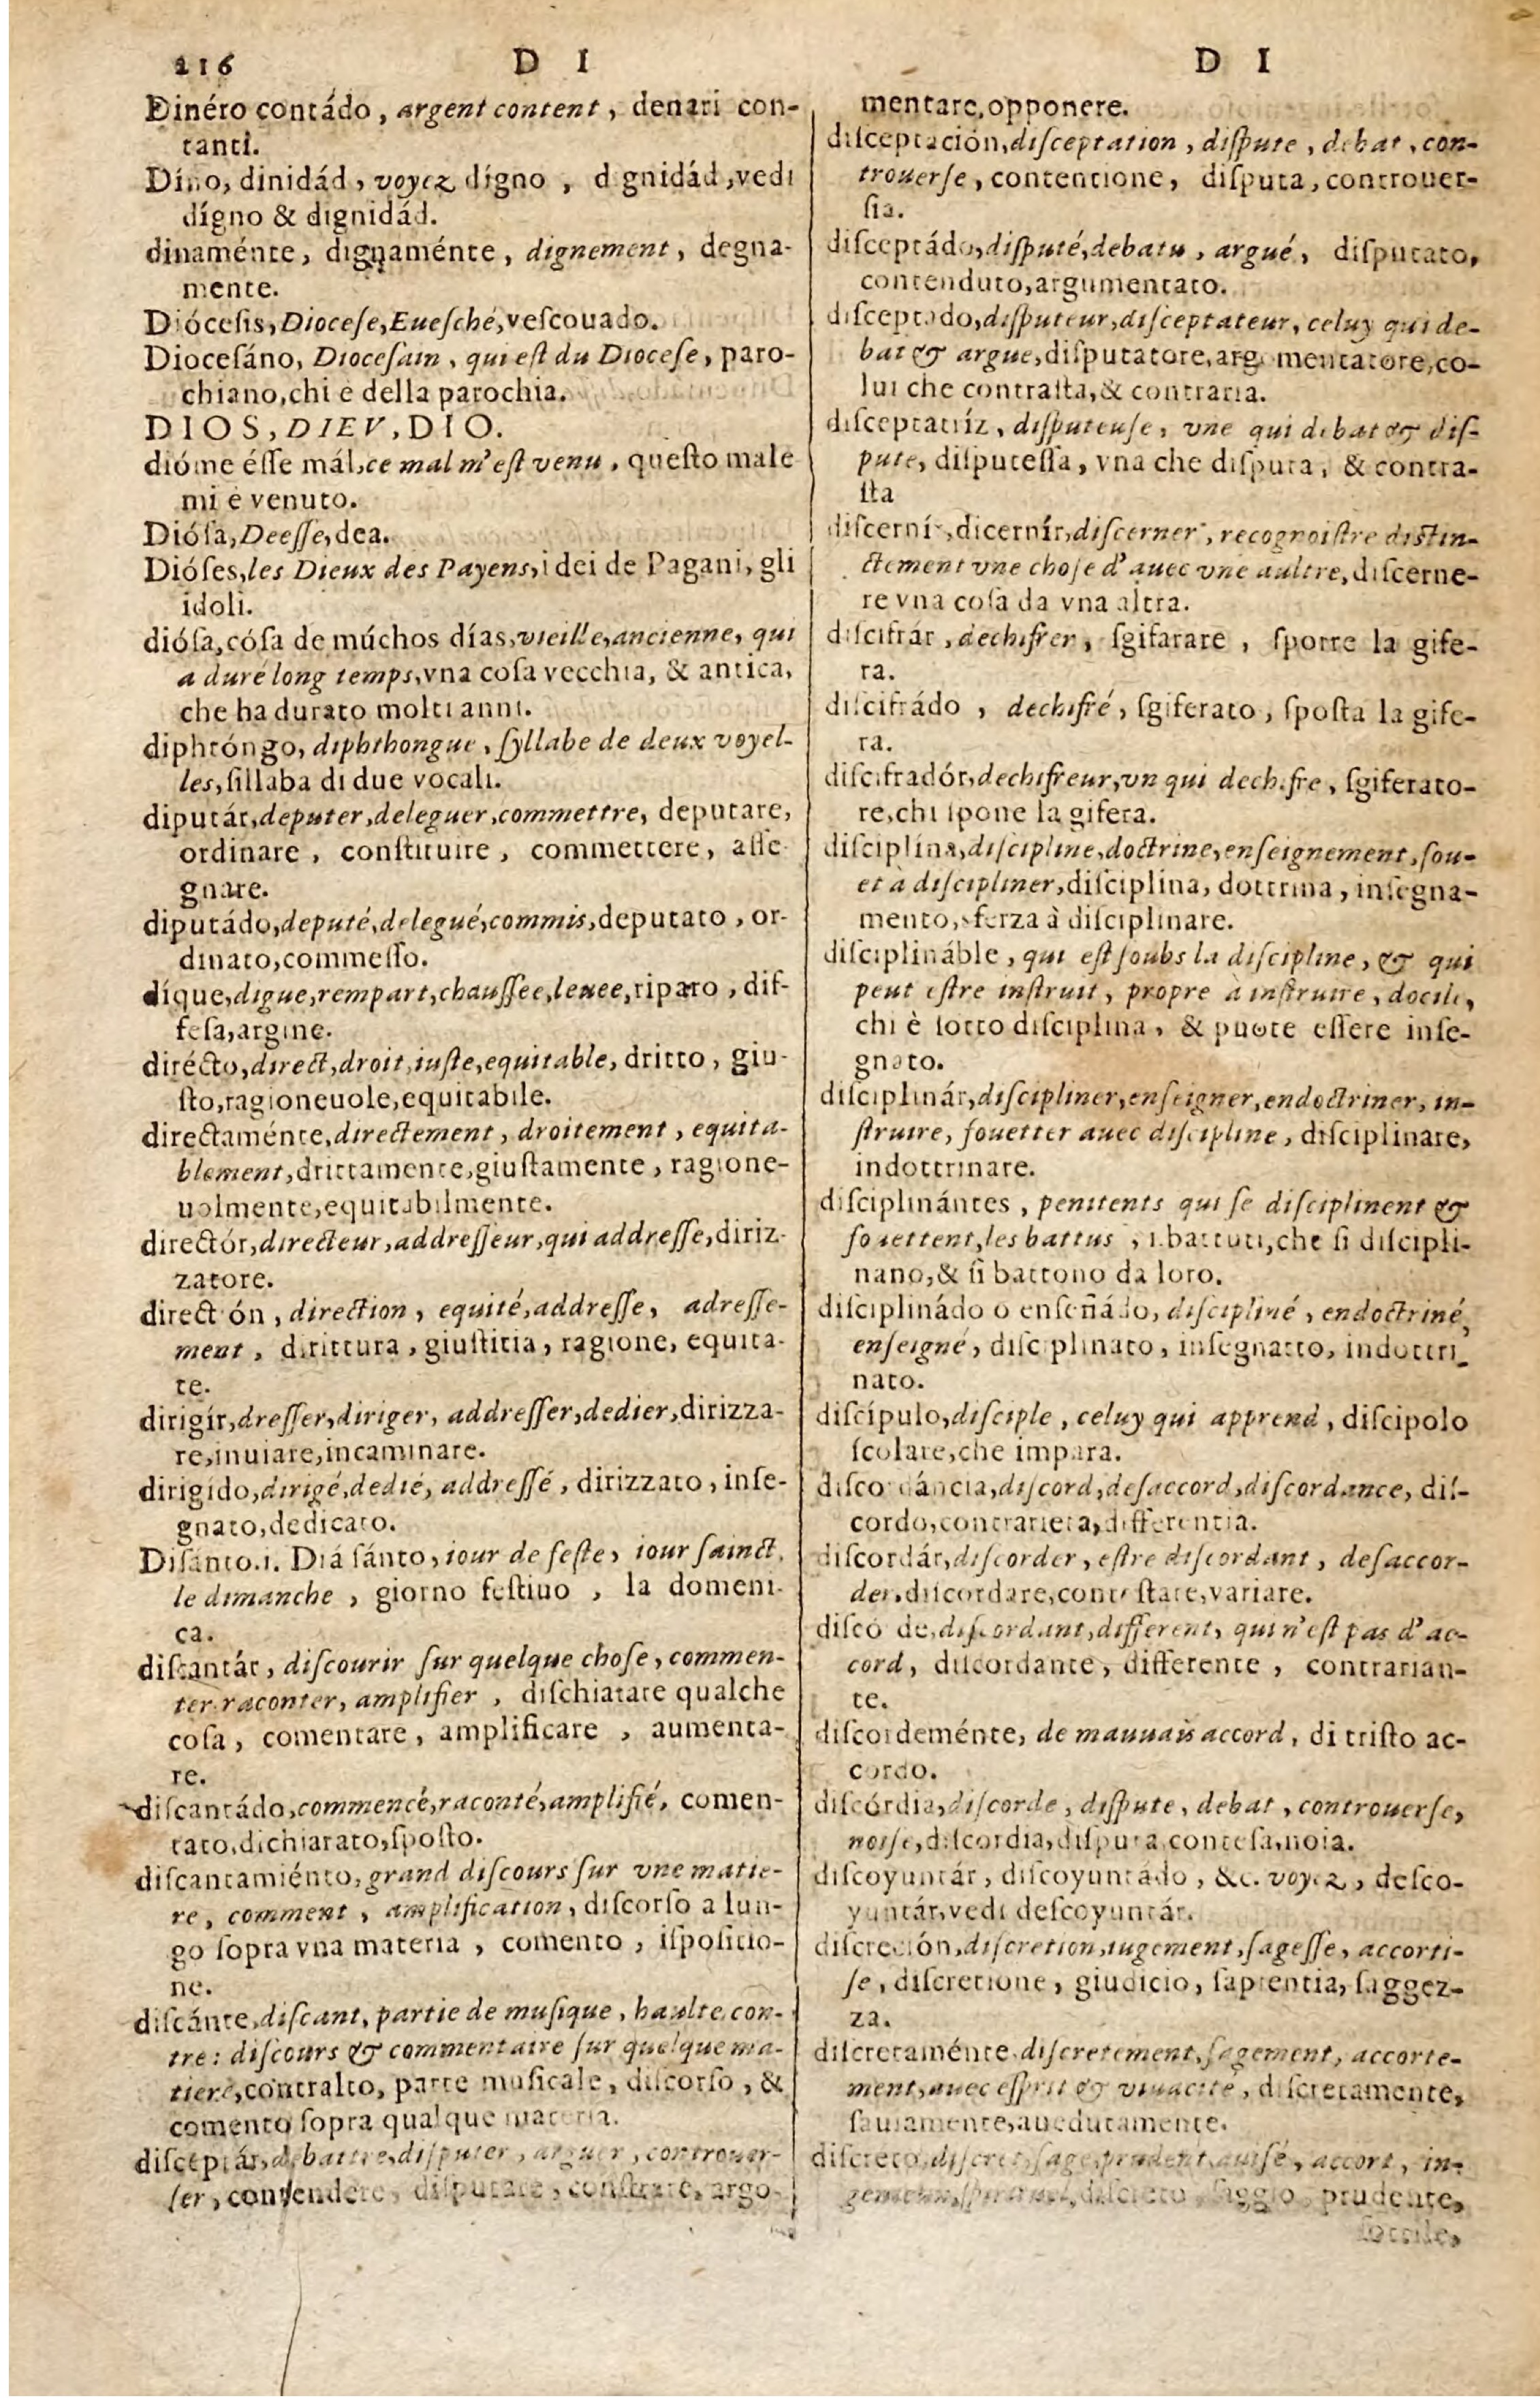 216 D I D I
Dinéro contádo, argent content, denari con-
tanti.
Díno, dinidád, voyez dígno, dignidád, vedi
dígno & dignidád.
dinaménte, dignaménte, dignement, degna-
mente.
Diócesis, Diocese, Euesché, vescouado.
Diocesáno, Diocesain, qui est du Diocese, paro-
chiano, chi è della parochia.
DIOS, DIEV, DIO.
dióme ésse mál, ce mal m'est venu, questo male
mi è venuto.
Diósa, Deesse, dea.
Dióses, les Dieux des Payens, i dei de Pagani, gli
idoli.
diósa, cósa de múchos días, vieille, ancienne, qui
a duré long temps, vna cosa vecchia, & antica,
che ha durato molti anni.
diphtóngo, diphthongue, syllabe de deux voyel-
les, sillaba di due vocali.
diputár, deputer, deleguer, commettre, deputare,
ordinare, constituire, commettere, asse-
gnare.
diputádo, deputé, delegué, commis, deputato, or-
dinato, commesso.
díque, digue, rempart, chaussee, leuee, riparo, dif-
fesa, argine.
dirécto, direct, droit, iuste, equitable, dritto, giu-
sto, ragioneuole, equitabile.
directaménte, directement, droitement, equita-
blement, drittamente, giustamente, ragione-
uolmente, equitabilmente.
directór, directeur, addresseur, qui addresse, diriz-
zatore.
directión, direction, equité, addresse, adresse-
ment, dirittura, giustitia, ragione, equita-
te.
dirigír, dresser, diriger, addresser, dedier, dirizza-
re, inuiare, incaminare.
dirigído, dirigé, dedié, addressé, dirizzato, inse-
gnato, dedicato.
Disánto. i. Diá sánto, iour de feste, iour sainct,
le dimanche, giorno festiuo, la domeni-
ca.
discantár, discourir sur quelque chose, commen-
ter, raconter, amplifier, dischiarare qualche
cosa, comentare, amplificare, aumenta-
re.
discantádo, commencé, raconté, amplifié, comen-
tato, dichiarato, sposto.
discantamiénto, grand discours sur vne matie-
re, comment, amplification, discorso a lun-
go sopra vna materia, comento, ispositio-
ne.
discánte, discant, partie de musique, haulte con-
tre: discours & commentaire sur quelque ma-
tiere, contralto, parte musicale, discorso, &
comento sopra qualque materia.
disceptár, debattre, disputer, arguer, controuer-
ser, contendere, disputare, constrare, argo-
mentare, opponere.
disceptación, disceptation, dispute, debat, con-
trouerse, contentione, disputa, controuer-
sia.
disceptádo, disputé, debatu, argué, disputato,
contenduto, argumentato.
disceptado, disputeur, disceptateur, celuy qui de-
bat & argue, disputatore, argomentatore, co-
lui che contrasta, & contraria.
disceptatríz, disputeuse, vne qui debat & dis-
pute, disputessa, vna che disputa, & contra-
sta
discernír, dicernír, discerner, recognoistre distin-
ctement vne chose d'auec vne aultre, discerne-
re vna cosa da vna altra.
discifrár, dechifrer, sgifarare, sporre la gife-
ra.
discifrádo, dechifré, sgiferato, sposta la gife-
ra.
discifradór, dechifreur, vn qui dechifre, sgiferato-
re, chi spone la gifera.
disciplína, discipline, doctrine, enseignement, fou-
et à discipliner, disciplina, dottrina, insegna-
mento, sferza à disciplinare.
disciplináble, qui est soubs la discipline, & qui
peut estre instruit, propre à instruire, docile,
chi è sotto disciplina, & puote essere inse-
gnato.
disciplinár, discipliner, enseigner, endoctriner, in-
struire, fouetter auec discipline, disciplinare,
indottrinare.
disciplinántes, penitents qui se disciplinent &
fouettent, les battus, i battuti, che si discipli-
nano, & si battono da loro.
disciplinádo o enseñádo, discipliné, endoctriné,
enseigné, disciplinato, insegnatto, indottri-
nato.
discípulo, disciple, celuy qui apprend, discipolo
scolare, che impara.
discordáncia, discord, desaccord, discordance, dis-
cordo, contrarieta, differentia.
discordár, discorder, estre discordant, desaccor-
der, discordare, contrastare, variare.
discórde, discordant, different, qui n'est pas d'ac-
cord, discordante, differente, contrarian-
te.
discordeménte, de mauuais accord, di tristo ac-
cordo.
discórdia, discorde, dispute, debat, controuerse,
noise, discordia, disputa, contesa, noia.
discoyuntár, discoyuntádo, &c. voyez, desco-
yuntár, vedi descoyuntár.
discreción, discretion, iugement, sagesse, accorti-
se, discretione, giudicio, sapientia, saggez-
za.
discretaménte, discretement, sagement, accorte-
ment, auec esprit & viuacité, discretamente,
sauiamente, auedutamente.
discreto, discret, sage, prudent, auisé, accort, in-
genieux, spirituel, discreto, saggio, prudente,
sottile,